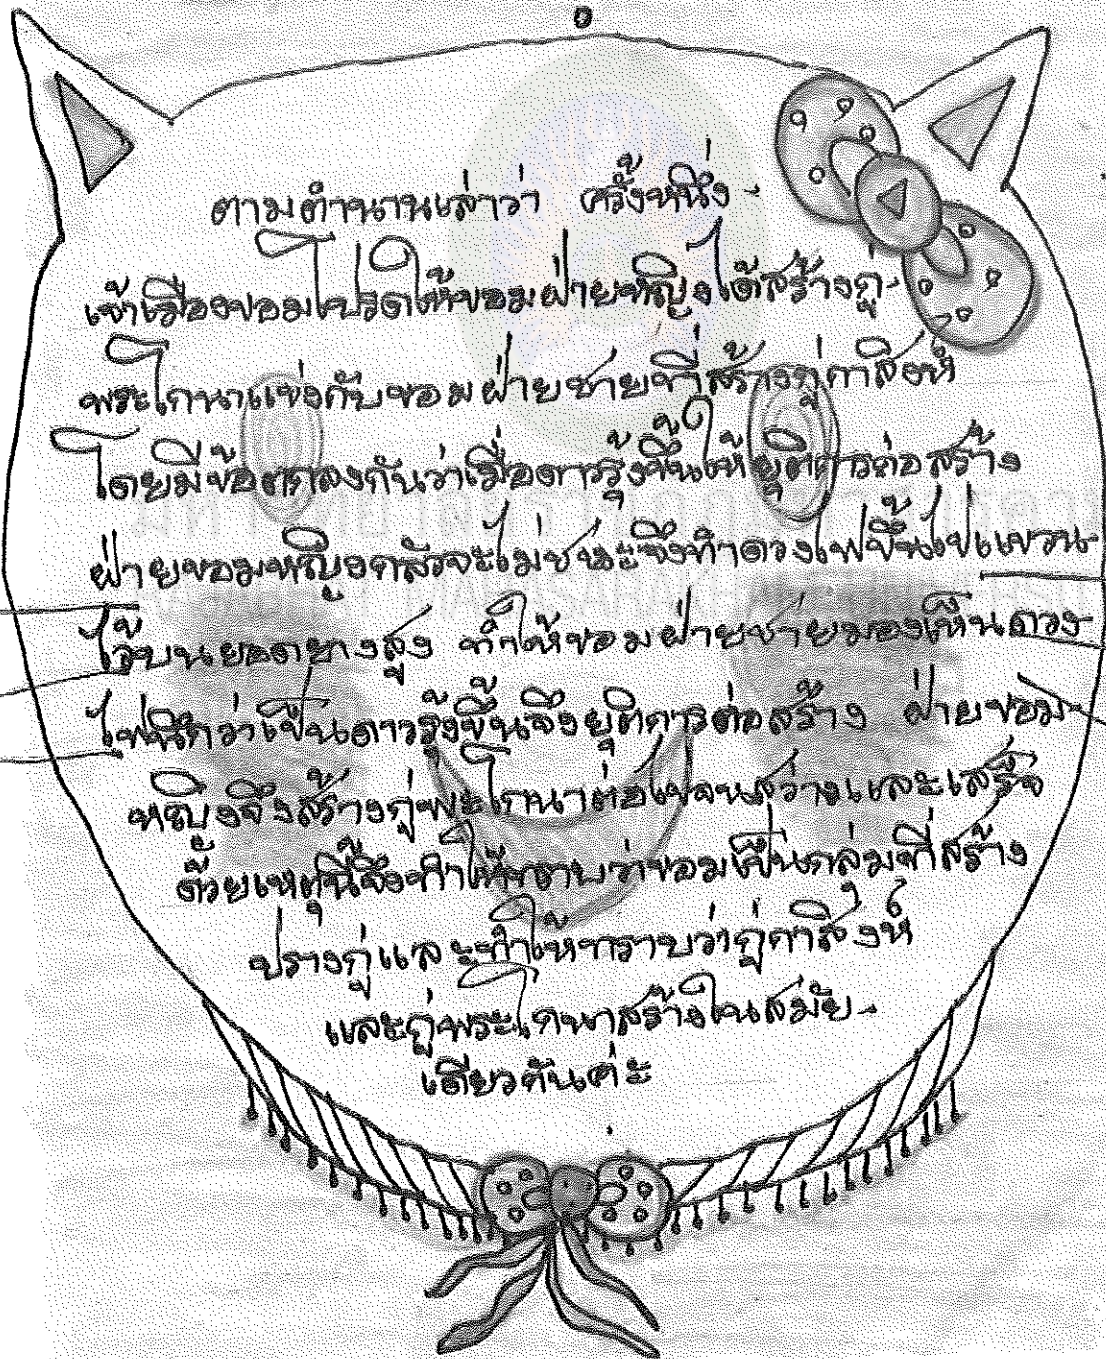 ตามตำนานเล่าว่า ครั้งหนึ่ง-
เจ้าเมืองขอมโปรดให้ขอมฝ่ายหญิงได้สร้างกู่-
พระโกนาแข่งกับขอมฝ่ายชายที่สร้างกู่กาสิงห์
โดยมีข้อตกลงกันว่าเมื่อดาวรุ้งขึ้นให้ยุติการก่อสร้าง
ฝ่ายขอมหญิงกลัวจะไม่ชนะจึงทำดวงไฟขึ้นไปแขวน-
ไว้บนยอดยางสูง ทำให้ขอมฝ่ายชายมองเห็นดวง-
ไฟนึกว่าเป็นดาวรุ้งขึ้นจึงยุติการก่อสร้าง ฝ่ายขอม
หญิงจึงสร้างกู่พระโกนาต่อไปจนสว่างและเสร็จ
ด้วยเหตุนี้จึงทำให้ทราบว่าขอมเป็นกลุ่มที่สร้าง
ปรางกู่และทำให้ทราบว่ากู่กาสิงห์
และกู่พระโกนาสร้างในสมัย-
เดียวกันค่ะ